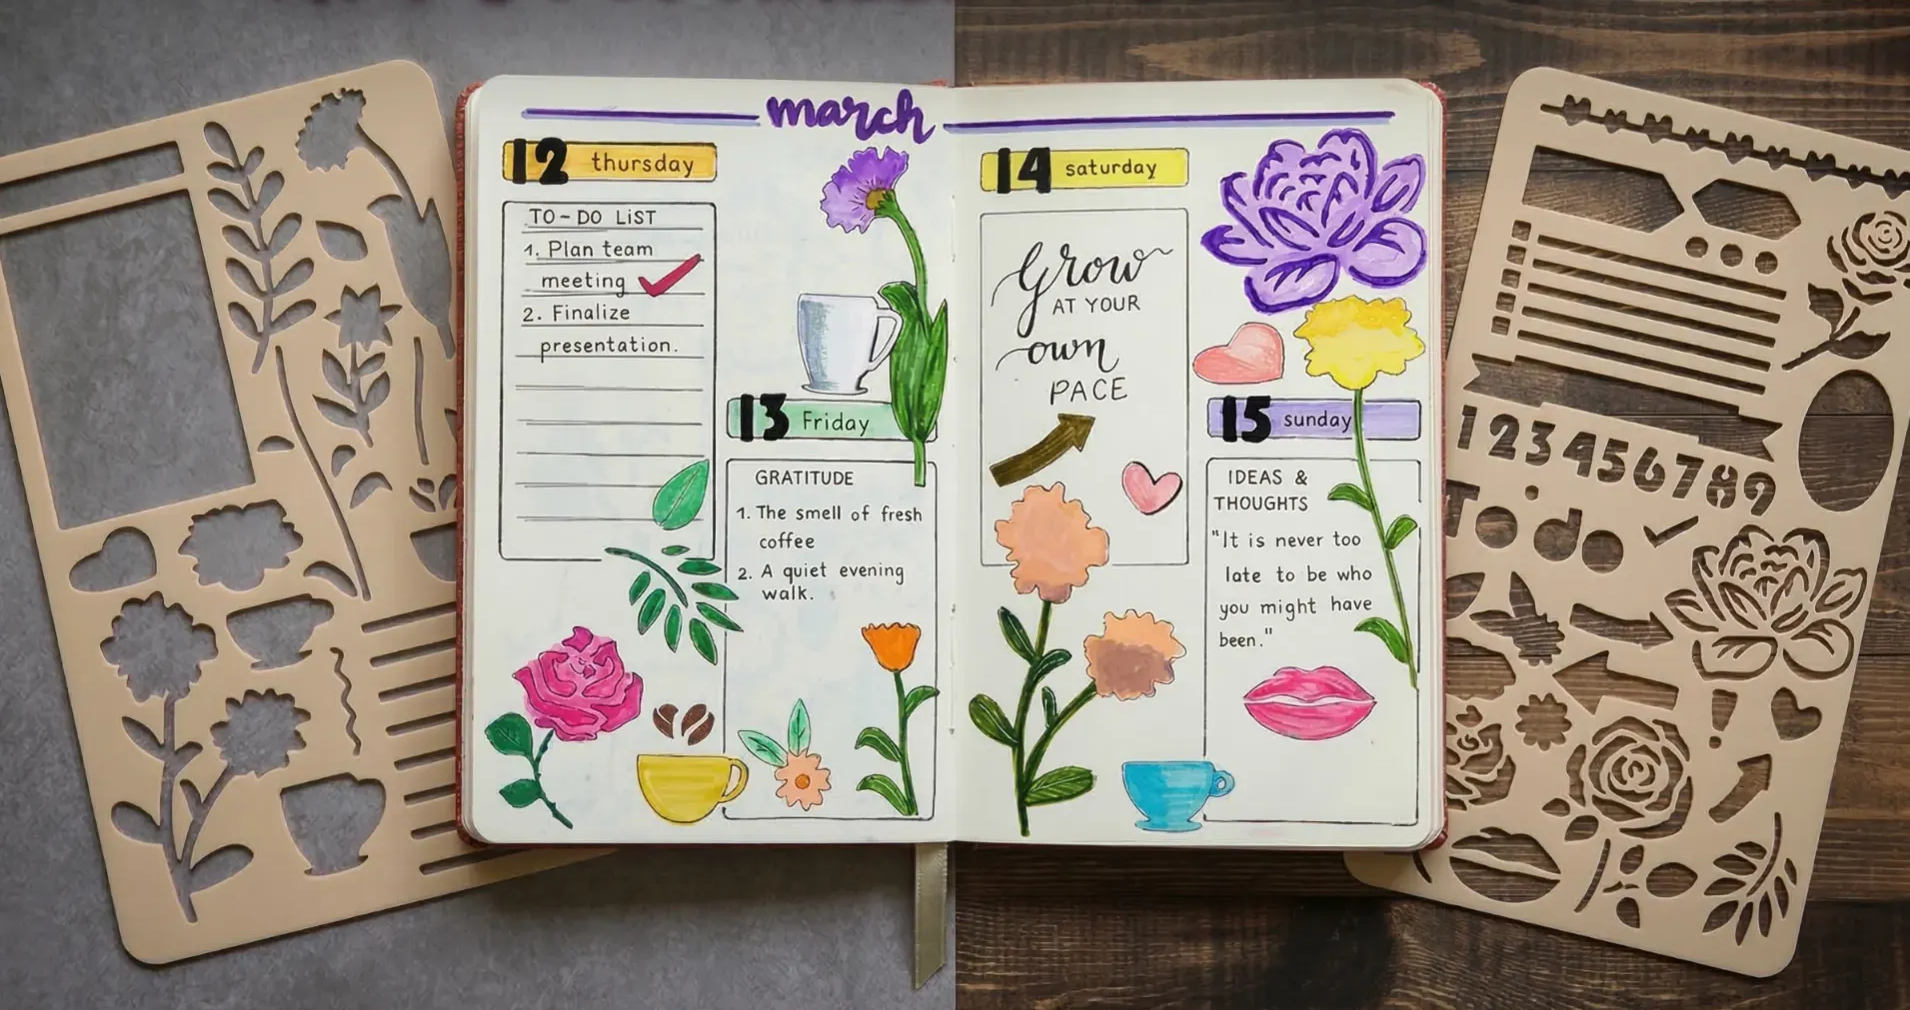 march
12 thursday
TO-DO LiST
1. Plan team
meeting
2. Finalize
presentation.
13 Friday
GRATITUDE
1. The smell of fresh
coffee
2. A quiet evening
walk.
14 saturday
Grow
AT YOUR
own
PACE
15 sunday
IDEAS &
THOUGHTS
"It is never too
late to be who
you might have
been."
123456789
To do